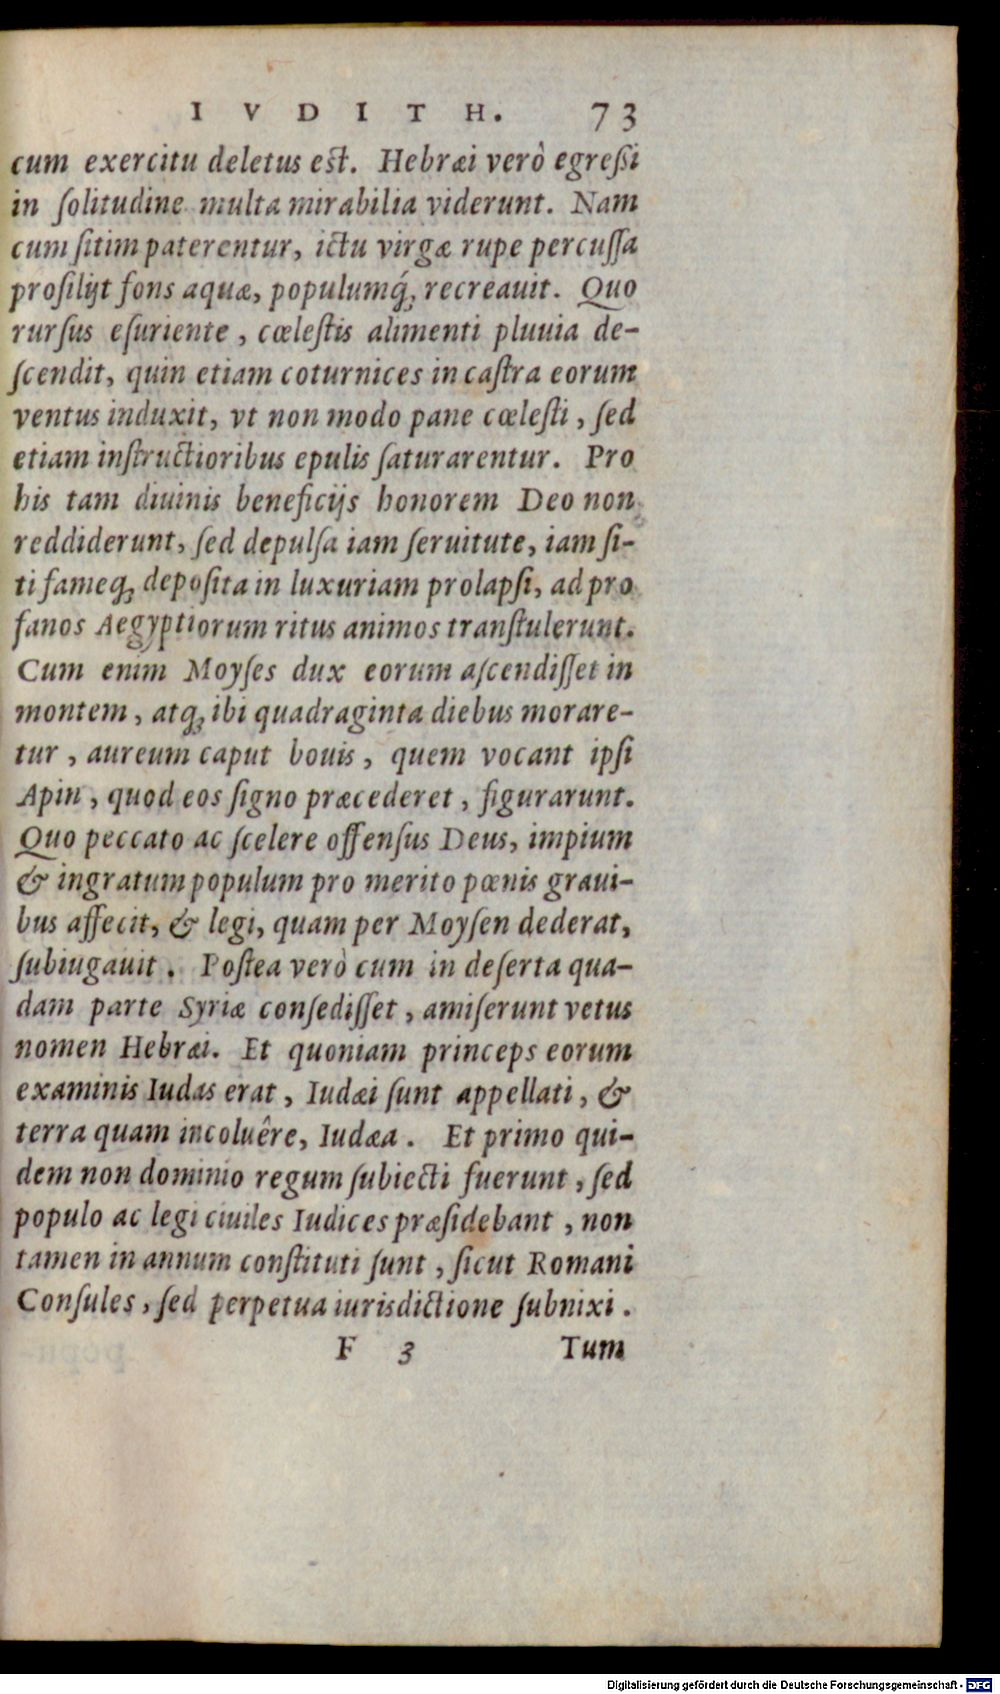 IVDITH. 73
cum exercitu deletus est. Hebræi verò egreßi
in ſolitudine multa mirabilia viderunt. Nam
cum ſitim paterentur, ictu virgæ rupe percuſſa
proſilijt fons aquæ, populumq́; recreauit. Quo
rurſus eſuriente, cœleſtis alimenti pluuia de-
ſcendit, quin etiam coturnices in caſtra eorum
ventus induxit, vt non modo pane cœleſti, ſed
etiam inſtructioribus epulis ſaturarentur. Pro
his tam diuinis beneficijs honorem Deo non
reddiderunt, ſed depulſa iam ſeruitute, iam ſi-
ti fameq; depoſita in luxuriam prolapſi, ad pro
fanos Aegyptiorum ritus animos tranſtulerunt.
Cum enim Moyſes dux eorum aſcendiſſet in
montem, atq; ibi quadraginta diebus morare-
tur, aureum caput bouis, quem vocant ipſi
Apin, quod eos ſigno præcederet, figurarunt.
Quo peccato ac ſcelere offenſus Deus, impium
& ingratum populum pro merito pœnis graui-
bus affecit, & legi, quam per Moyſen dederat,
ſubiugauit. Poſtea verò cum in deſerta qua-
dam parte Syriæ conſediſſet, amiſerunt vetus
nomen Hebræi. Et quoniam princeps eorum
examinis Iudas erat, Iudæi ſunt appellati, &
terra quam incoluêre, Iudæa. Et primo qui-
dem non dominio regum ſubiecti fuerunt, ſed
populo ac legi ciuiles Iudices præſidebant, non
tamen in annum conſtituti ſunt, ſicut Romani
Conſules, ſed perpetua iurisdictione ſubnixi.
F 3 Tum
Digitalisierung gefördert durch die Deutsche Forschungsgemeinschaft - DFG